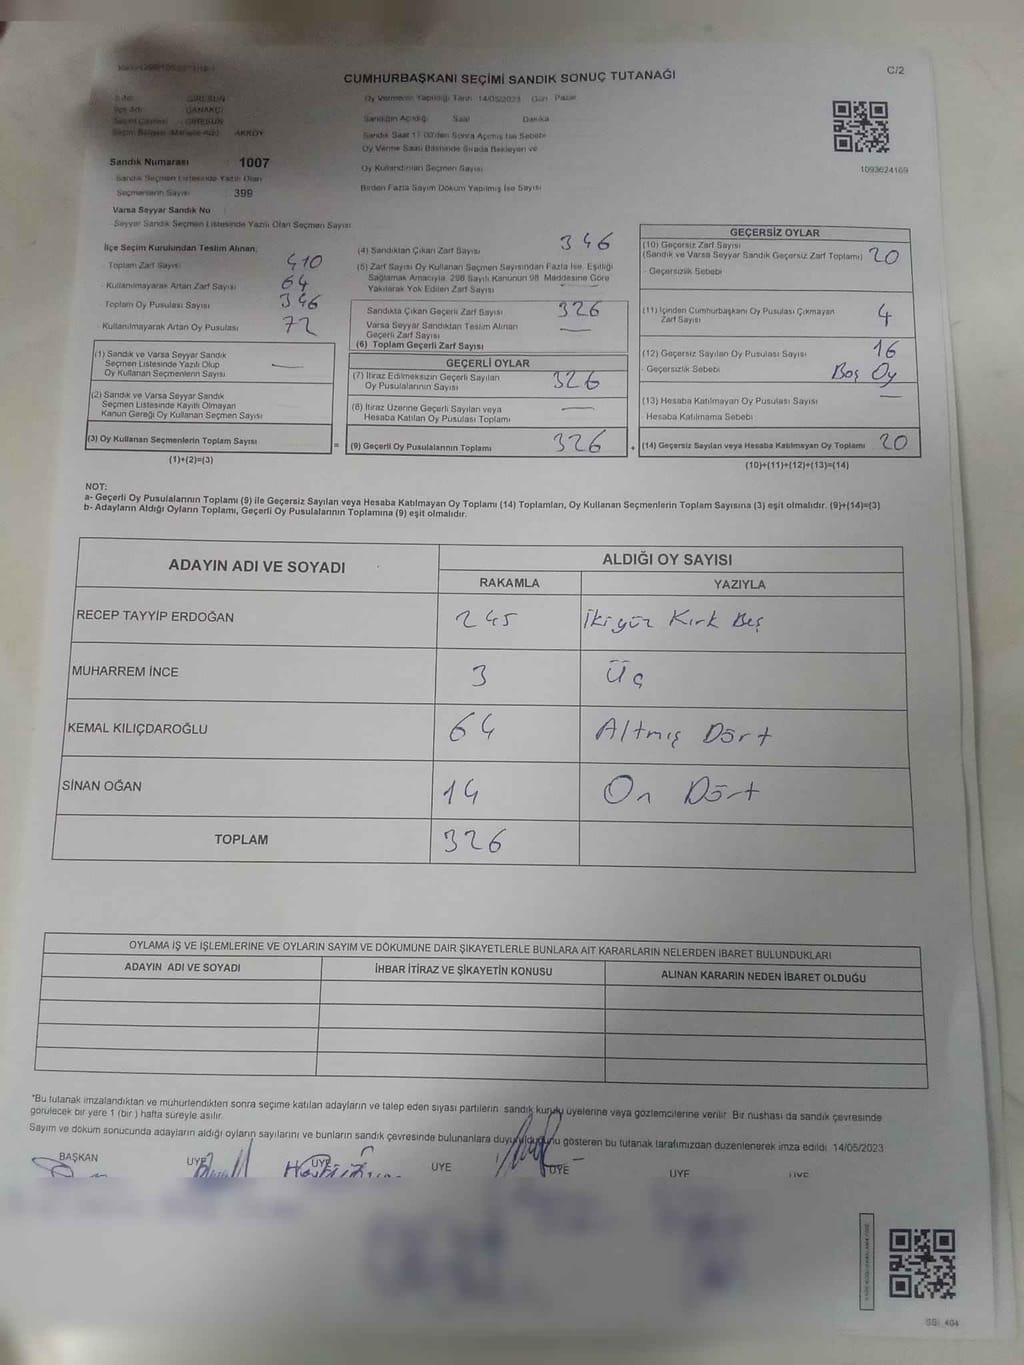 CUMHURBAŞKANI SEÇİMİ SANDIK SONUÇ TUTANAĞI
C/2
İl Adı: GİRESUN
İlçe Adı: ÇANAKÇI
Seçim Çevresi : GİRESUN
Seçim Bölgesi (Mahalle Adı): AKKÖY
Sandık Numarası : 1007
Sandık Seçmen Listesinde Yazılı Olan
Seçmenlerin Sayısı : 399
Varsa Seyyar Sandık No
Seyyar Sandık Seçmen Listesinde Yazılı Olan Seçmen Sayısı
Oy Vermenin Yapıldığı Tarih 14/05/2023 Gün Pazar
Sandığın Açıldığı Saat Dakika
Sandık Saat 17:00'den Sonra Açılmış İse Sebebi
Oy Verme Saati Bitiminde Sırada Bekleyen ve
Oy Kullandırılan Seçmen Sayısı
Birden Fazla Sayım Döküm Yapılmış İse Sayısı
1093624169
İlçe Seçim Kurulundan Teslim Alınan;
Toplam Zarf Sayısı 410
Kullanılmayarak Artan Zarf Sayısı 64
Toplam Oy Pusulası Sayısı 346
Kullanılmayarak Artan Oy Pusulası 72
(1) Sandık ve Varsa Seyyar Sandık
Seçmen Listesinde Yazılı Olup
Oy Kullanan Seçmenlerin Sayısı —
(2) Sandık ve Varsa Seyyar Sandık
Seçmen Listesinde Kayıtlı Olmayan
Kanun Gereği Oy Kullanan Seçmen Sayısı
(3) Oy Kullanan Seçmenlerin Toplam Sayısı =
(1)+(2)=(3)
(4) Sandıktan Çıkan Zarf Sayısı 346
(5) Zarf Sayısı Oy Kullanan Seçmen Sayısından Fazla İse, Eşitliği
Sağlamak Amacıyla, 298 Sayılı Kanunun 98. Maddesine Göre
Yakılarak Yok Edilen Zarf Sayısı —
Sandıkta Çıkan Geçerli Zarf Sayısı 326
Varsa Seyyar Sandıktan Teslim Alınan
Geçerli Zarf Sayısı —
(6) Toplam Geçerli Zarf Sayısı
GEÇERLİ OYLAR
(7) İtiraz Edilmeksizin Geçerli Sayılan
Oy Pusulalarının Sayısı 326
(8) İtiraz Üzerine Geçerli Sayılan veya
Hesaba Katılan Oy Pusulaları Toplamı —
(9) Geçerli Oy Pusulalarının Toplamı 326 +
GEÇERSİZ OYLAR
(10) Geçersiz Zarf Sayısı
(Sandık ve Varsa Seyyar Sandık Geçersiz Zarf Toplamı) 20
- Geçersizlik Sebebi
(11) İçinden Cumhurbaşkanı Oy Pusulası Çıkmayan
Zarf Sayısı 4
(12) Geçersiz Sayılan Oy Pusulası Sayısı 16
- Geçersizlik Sebebi Boş Oy
(13) Hesaba Katılmayan Oy Pusulası Sayısı —
Hesaba Katılmama Sebebi
(14) Geçersiz Sayılan veya Hesaba Katılmayan Oy Toplamı 20
(10)+(11)+(12)+(13)=(14)
NOT:
a- Geçerli Oy Pusulalarının Toplamı (9) ile Geçersiz Sayılan veya Hesaba Katılmayan Oy Toplamı (14) Toplamları, Oy Kullanan Seçmenlerin Toplam Sayısına (3) eşit olmalıdır. (9)+(14)=(3)
b- Adayların Aldığı Oyların Toplamı, Geçerli Oy Pusulalarının Toplamına (9) eşit olmalıdır.
ADAYIN ADI VE SOYADI
ALDIĞI OY SAYISI
RAKAMLA YAZIYLA
RECEP TAYYİP ERDOĞAN 245 İkiyüz Kırk Beş
MUHARREM İNCE 3 Üç
KEMAL KILIÇDAROĞLU 64 Altmış Dört
SİNAN OĞAN 14 On Dört
TOPLAM 326
OYLAMA İŞ VE İŞLEMLERİNE VE OYLARIN SAYIM VE DÖKÜMÜNE DAİR ŞİKAYETLERLE BUNLARA AİT KARARLARIN NELERDEN İBARET BULUNDUKLARI
ADAYIN ADI VE SOYADI İHBAR İTİRAZ VE ŞİKAYETİN KONUSU ALINAN KARARIN NEDEN İBARET OLDUĞU
*Bu tutanak imzalandıktan ve mühürlendikten sonra seçime katılan adayların ve talep eden siyasi partilerin sandık kurulu üyelerine veya gözlemcilerine verilir. Bir nüshası da sandık çevresinde
görülecek bir yere 1 (bir ) hafta süreyle asılır.
Sayım ve döküm sonucunda adayların aldığı oyların sayılarını ve bunların sandık çevresinde bulunanlara duyurulduğunu gösteren bu tutanak tarafımızdan düzenlenerek imza edildi. 14/05/2023
BAŞKAN ÜYE ÜYE ÜYE ÜYE ÜYE ÜYE